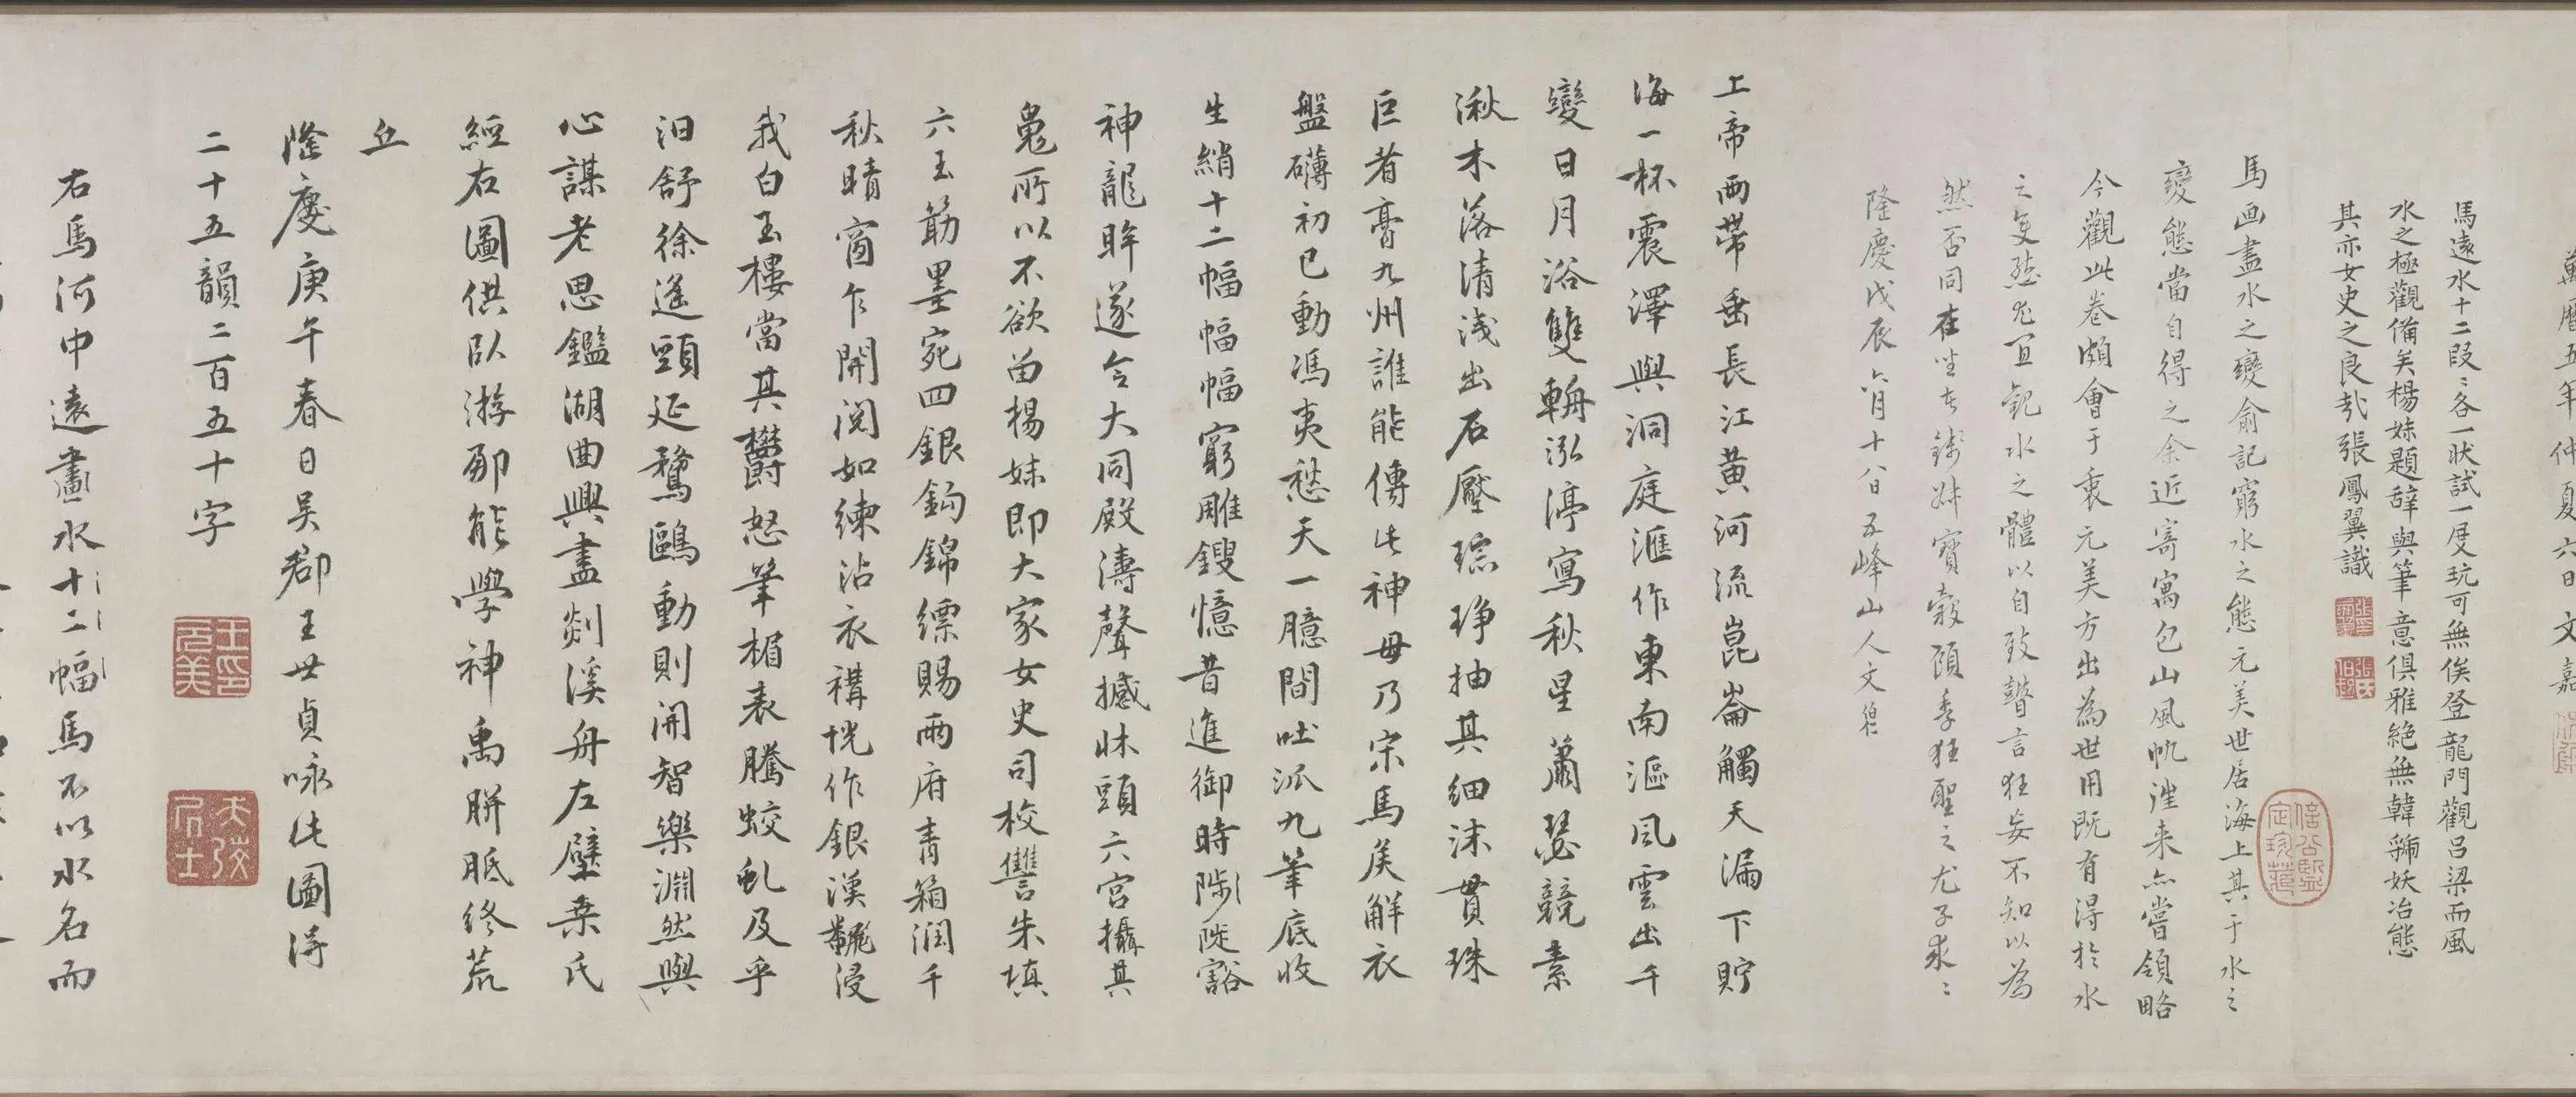 萬曆五年仲夏六日文嘉
馬遠水十二段〻各一狀試一展玩可無俟登龍門觀呂梁而風
水之極觀備矣楊妹題辭與筆意俱雅絕無韓虢妖冶態
其亦女史之良哉張鳳翼識
馬画盡水之變俞記窮水之態元美世居海上其于水之
變態當自得之余近寄寓包山風帆淮来亦嘗領略
今觀此卷頗會于衷元美方出為世用既有得於水
之更 宜觀水之體以自致瞽言狂妄不知以為
然否同在坐者錢叔寶穀顧季狂聖之尤子求〻
隆慶戊辰六月十八日五峰山人文伯仁
上帝兩帶垂長江黃河流崑崙觸天漏下貯
海一杯震澤與洞庭滙作東南漚風雲出千
變日月浴雙輈泓渟寫秋星蕭瑟競素
湫木落清淺出石壓琮琤抽其細沫貫珠
巨者膏九州誰能傳此神毋乃宋馬矦解衣
盤礴初已動馮夷愁天一臆間吐派九筆底收
生綃十二幅幅幅窮雕鎪憶昔進御時陟陡豁
神龍眸遂令大同殿濤聲撼牀頭六宮攝其
寬所以不欲留楊妹即大家女史司校讐朱填
六玉筯墨宛四銀鈎錦縹賜兩府青箱潤千
秋晴窗乍開閱如練沾衣褠恍作銀漢飜浸
我白玉樓當其欝怒筆楣表騰蛟虬及乎
汨舒徐遙頸延鶩鷗動則開智樂淵然與
心謀老思鑑湖曲興盡剡溪舟左壁桒氏
經右圖供臥游那能學神禹胼胝終荒
丘
隆慶庚午春日吳郡王世貞咏此圖得
二十五韻二百五十字
王印元美
天弢居士
右馬河中遠畫水十二幅馬不以水名而